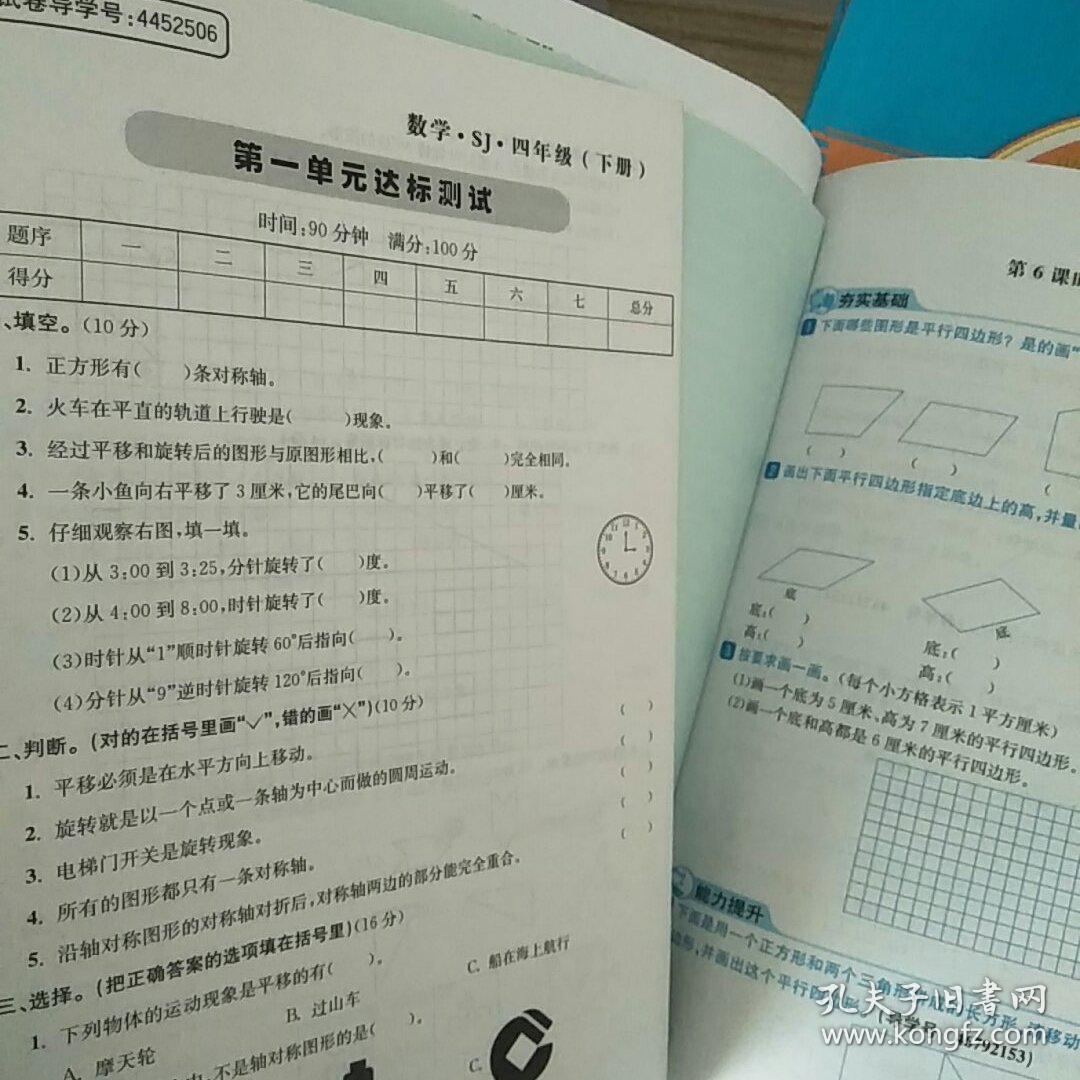 试卷导学号:4452506
数学·SJ·四年级(下册)
第一单元达标测试
时间:90分钟 满分:100分
题序 一 二 三 四 五 六 七 总分
得分
、填空。(10分)
1. 正方形有( )条对称轴。
2. 火车在平直的轨道上行驶是( )现象。
3. 经过平移和旋转后的图形与原图形相比,( )和( )完全相同。
4. 一条小鱼向右平移了3厘米,它的尾巴向( )平移了( )厘米。
5. 仔细观察右图,填一填。
(1)从3:00到3:25,分针旋转了( )度。
(2)从4:00到8:00,时针旋转了( )度。
(3)时针从“1”顺时针旋转60°后指向( )。
(4)分针从“9”逆时针旋转120°后指向( )。
二、判断。(对的在括号里画“√”,错的画“×”)(10分)
1. 平移必须是在水平方向上移动。 ( )
2. 旋转就是以一个点或一条轴为中心而做的圆周运动。 ( )
3. 电梯门开关是旋转现象。 ( )
4. 所有的图形都只有一条对称轴。 ( )
5. 沿轴对称图形的对称轴对折后,对称轴两边的部分能完全重合。 ( )
三、选择。(把正确答案的选项填在括号里)(16分)
1. 下列物体的运动现象是平移的有( )。
A. 摩天轮 B. 过山车 C. 船在海上航行
不是轴对称图形的是( )。
C.
第6课时
夯实基础
1 下面哪些图形是平行四边形?是的画“
( ) ( ) (
2 画出下面平行四边形指定底边上的高,并量
底 底
底:( ) 底:( )
高:( ) 高:( )
3 按要求画一画。(每个小方格表示1平方厘米)
(1)画一个底为5厘米、高为7厘米的平行四边形。
(2)画一个底和高都是6厘米的平行四边形。
能力提升
下面是用一个正方形和两个三角形拼成的长方形,
移动
边形,并画出这个平行四边形。
(导学号 48792153)
孔夫子旧书网
www.kongfz.com